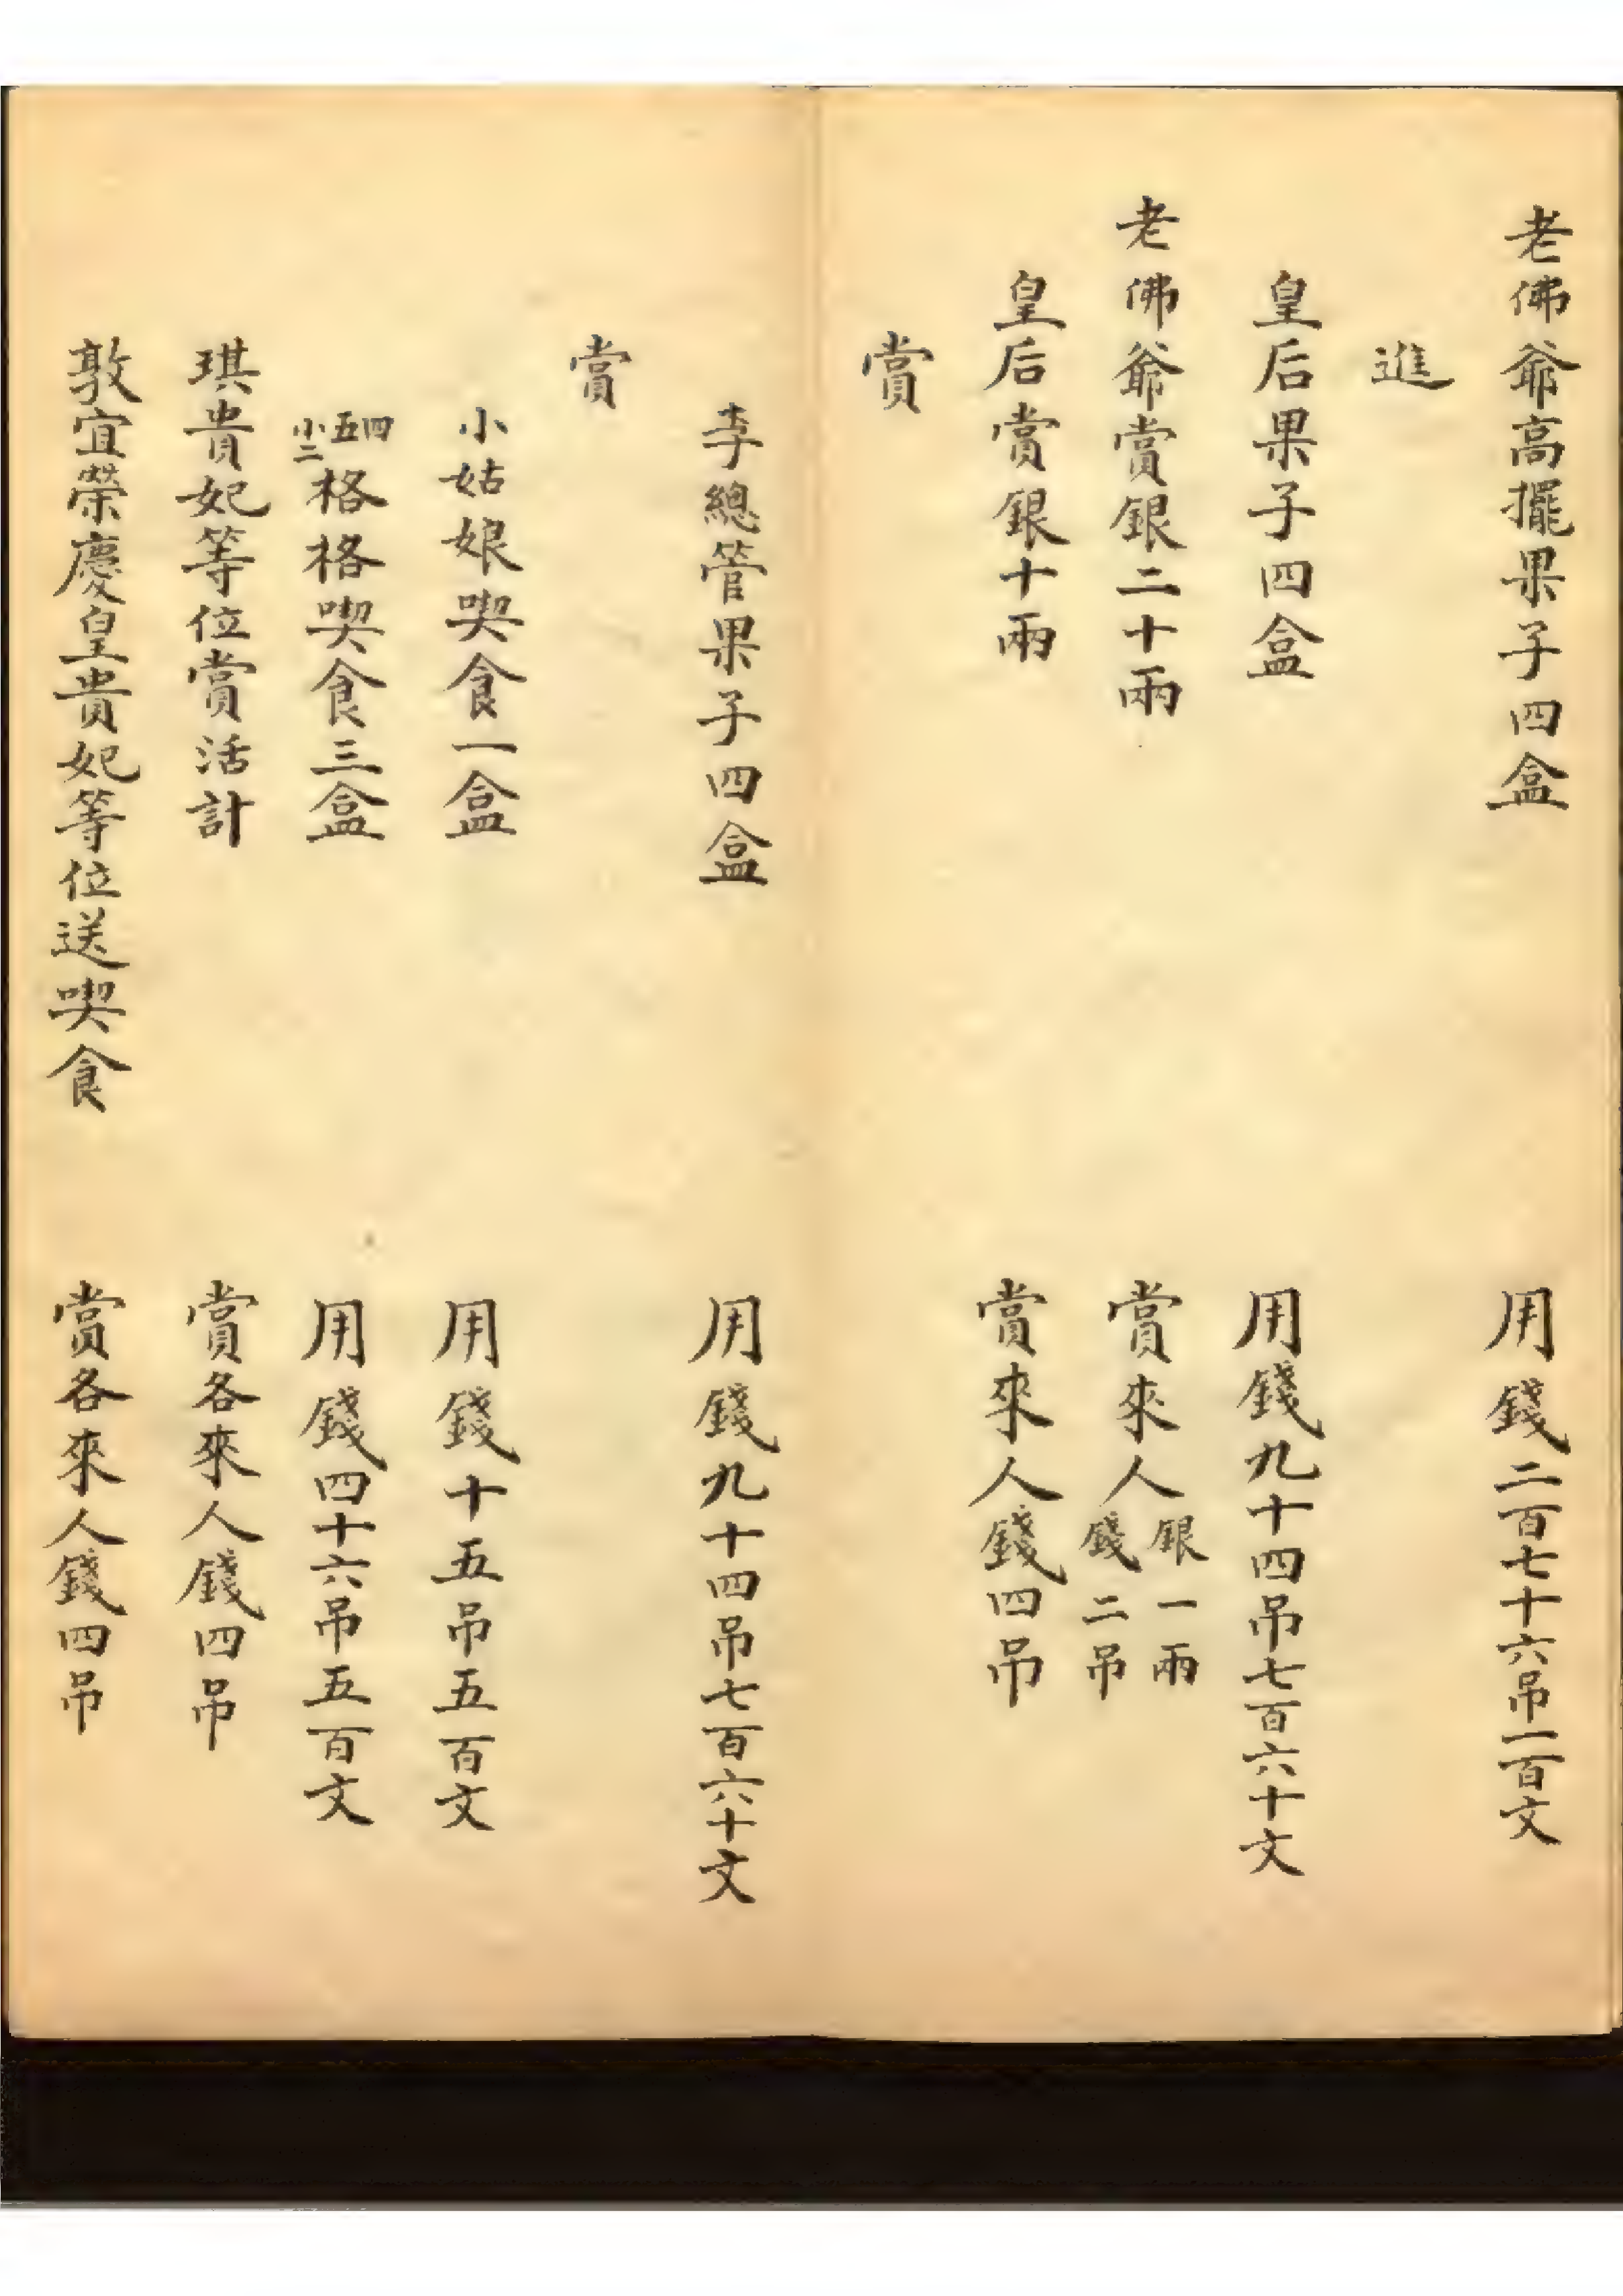 老佛爺高擺果子四盒　用錢二百七十六吊一百文
進
皇后果子四盒　用錢九十四吊七百六十文
老佛爺賞銀二十兩　賞來人銀一兩錢二吊
皇后賞銀十兩　賞來人錢四吊
賞
李總管果子四盒　用錢九十四吊七百六十文
賞
小姑娘喫食一盒　用錢十五吊五百文
四五小二格格喫食三盒　用錢四十六吊五百文
琪貴妃等位賞活計　賞各來人錢四吊
敦宜榮慶皇貴妃等位送喫食　賞各來人錢四吊